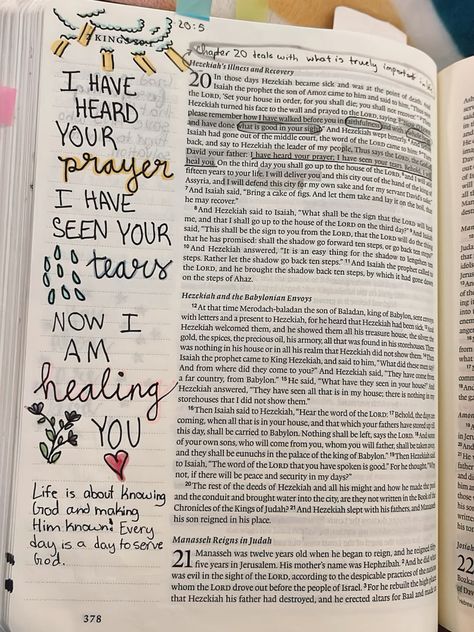 20:5
2 KINGS 20:1
Chapter 20 deals with what is truely important in
I HAVE
HEARD
YOUR
prayer
I HAVE
SEEN YOUR
tears
NOW I
AM
healing
YOU
Life is about knowing
God and making
Him known. Every
day is a day to serve
God.
378
Hezekiah's Illness and Recovery
20 In those days Hezekiah became sick and was at the point of death. And
Isaiah the prophet the son of Amoz came to him and said to him, "Thus says the
LORD, 'Set your house in order, for you shall die; you shall not recover.'"
Hezekiah turned his face to the wall and prayed to the LORD, saying,
please remember how I have walked before you in faithfulness and with
and have done what is good in your sight." And Hezekiah wept bitterly. 4 And before
Isaiah had gone out of the middle court, the word of the LORD came to him:
back, and say to Hezekiah the leader of my people, Thus says the LORD, the God of
David your father: I have heard your prayer; I have seen your tears. Behold, I will
heal you. On the third day you shall go up to the house of the LORD, 6 and I will add
fifteen years to your life. I will deliver you and this city out of the hand of the king of
Assyria, and I will defend this city for my own sake and for my servant David's sake."
7 And Isaiah said, "Bring a cake of figs. And let them take and lay it on the boil, that
he may recover."
8 And Hezekiah said to Isaiah, "What shall be the sign that the LORD will heal
me, and that I shall go up to the house of the LORD on the third day?" 9 And Isaiah
said, "This shall be the sign to you from the LORD, that the LORD will do the thing
that he has promised: shall the shadow go forward ten steps, or go back ten steps?"
10 And Hezekiah answered, "It is an easy thing for the shadow to lengthen ten
steps. Rather let the shadow go back ten steps." 11 And Isaiah the prophet called to
the LORD, and he brought the shadow back ten steps, by which it had gone down
on the steps of Ahaz.
Hezekiah and the Babylonian Envoys
12 At that time Merodach-baladan the son of Baladan, king of Babylon, sent envoys
with letters and a present to Hezekiah, for he heard that Hezekiah had been sick. 13 And
Hezekiah welcomed them, and he showed them all his treasure house, the silver, the
gold, the spices, the precious oil, his armory, all that was found in his storehouses. There
was nothing in his house or in all his realm that Hezekiah did not show them. 14 Then
Isaiah the prophet came to King Hezekiah, and said to him, "What did these men say?
And from where did they come to you?" And Hezekiah said, "They have come from
a far country, from Babylon." 15 He said, "What have they seen in your house?" And
Hezekiah answered, "They have seen all that is in my house; there is nothing in my
storehouses that I did not show them."
16 Then Isaiah said to Hezekiah, "Hear the word of the LORD: 17 Behold, the days are
coming, when all that is in your house, and that which your fathers have stored up till
this day, shall be carried to Babylon. Nothing shall be left, says the LORD. 18 And some
of your own sons, who will come from you, whom you will father, shall be taken away,
and they shall be eunuchs in the palace of the king of Babylon." 19 Then Hezekiah said
to Isaiah, "The word of the LORD that you have spoken is good." For he thought, "Why
not, if there will be peace and security in my days?"
20 The rest of the deeds of Hezekiah and all his might and how he made the pool
and the conduit and brought water into the city, are they not written in the Book of the
Chronicles of the Kings of Judah? 21 And Hezekiah slept with his fathers, and Manasseh
his son reigned in his place.
Manasseh Reigns in Judah
21 Manasseh was twelve years old when he began to reign, and he reigned fifty-
five years in Jerusalem. His mother's name was Hephzibah. 2 And he did what
was evil in the sight of the LORD, according to the despicable practices of the nations
whom the LORD drove out before the people of Israel. 3 For he rebuilt the high places
that Hezekiah his father had destroyed, and he erected altars for Baal and made an
22